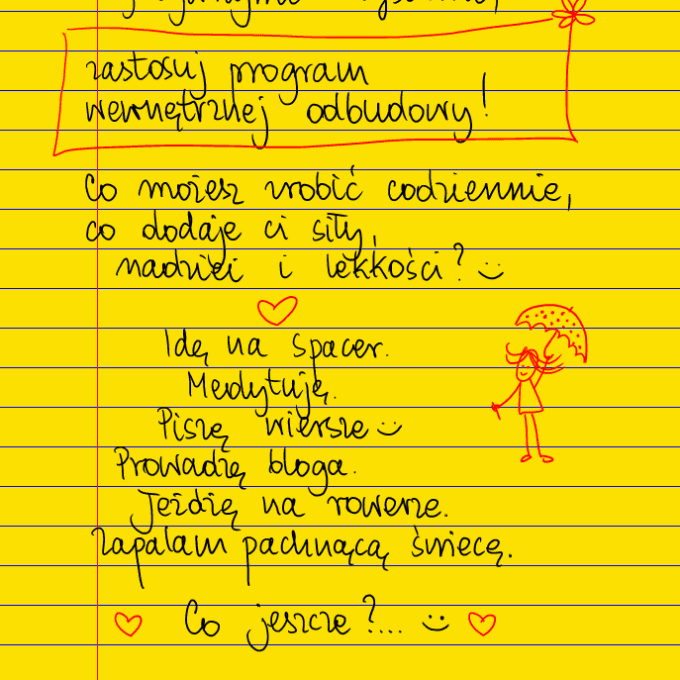 zastosuj program
wewnętrznej odbudowy!
Co możesz zrobić codziennie,
co dodaje ci siły,
nadziei i lekkości?
Idę na spacer.
Medytuję.
Piszę wiersze
Prowadzę bloga.
Jeżdżę na rowerze.
Zapalam pachnącą świecę.
Co jeszcze?...